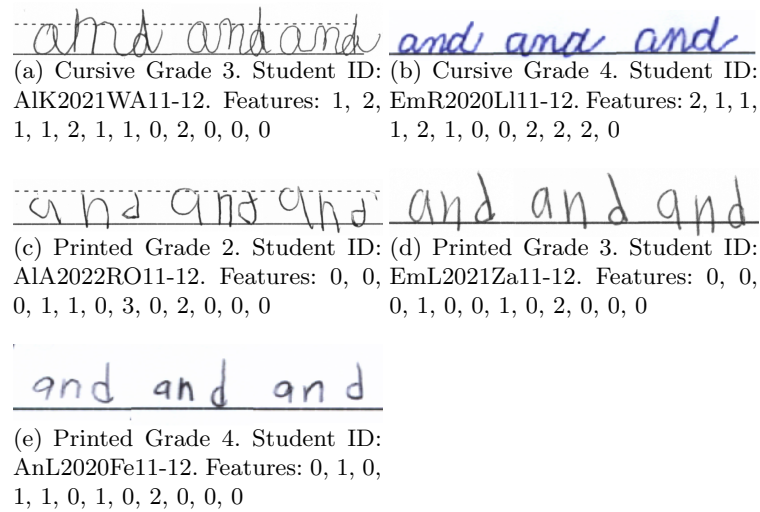 and and and
and and and
(a) Cursive Grade 3. Student ID:
AlK2021WA11-12. Features: 1, 2,
1, 1, 2, 1, 1, 0, 2, 0, 0, 0
(b) Cursive Grade 4. Student ID:
EmR2020Ll11-12. Features: 2, 1, 1,
1, 2, 1, 0, 0, 2, 2, 2, 0
and and and
and and and
(c) Printed Grade 2. Student ID:
AlA2022RO11-12. Features: 0, 0,
0, 1, 1, 0, 3, 0, 2, 0, 0, 0
(d) Printed Grade 3. Student ID:
EmL2021Za11-12. Features: 0, 0,
0, 1, 0, 0, 1, 0, 2, 0, 0, 0
and and and
(e) Printed Grade 4. Student ID:
AnL2020Fe11-12. Features: 0, 1, 0,
1, 1, 0, 1, 0, 2, 0, 0, 0